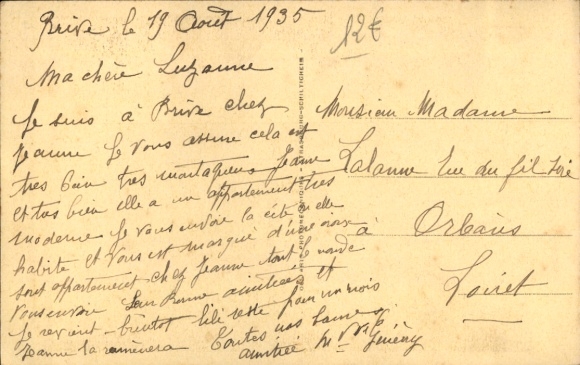 Brive le 19 Août 1935
12€
Ma chère Suzanne
Je suis à Brive chez
Jeanne Je vous assure cela est
tres bien tres montagneux Jeanne
et tres bien elle a un appartement tres
moderne Je vous envoie la cité ou elle
habite et vous est marqué d'une croix
sont appartement chez Jeanne tout le monde
vous envoie bonne amitiées et
Je revient bientot lili reste pour un mois
Jeanne la ramènera Toutes nos bonnes
amitiée Mme Vve
Monsieur Madame
Lalanne Rue du fil Soie
à Orléans
Loiret
STRASBOURG-SCHILTIGHEIM